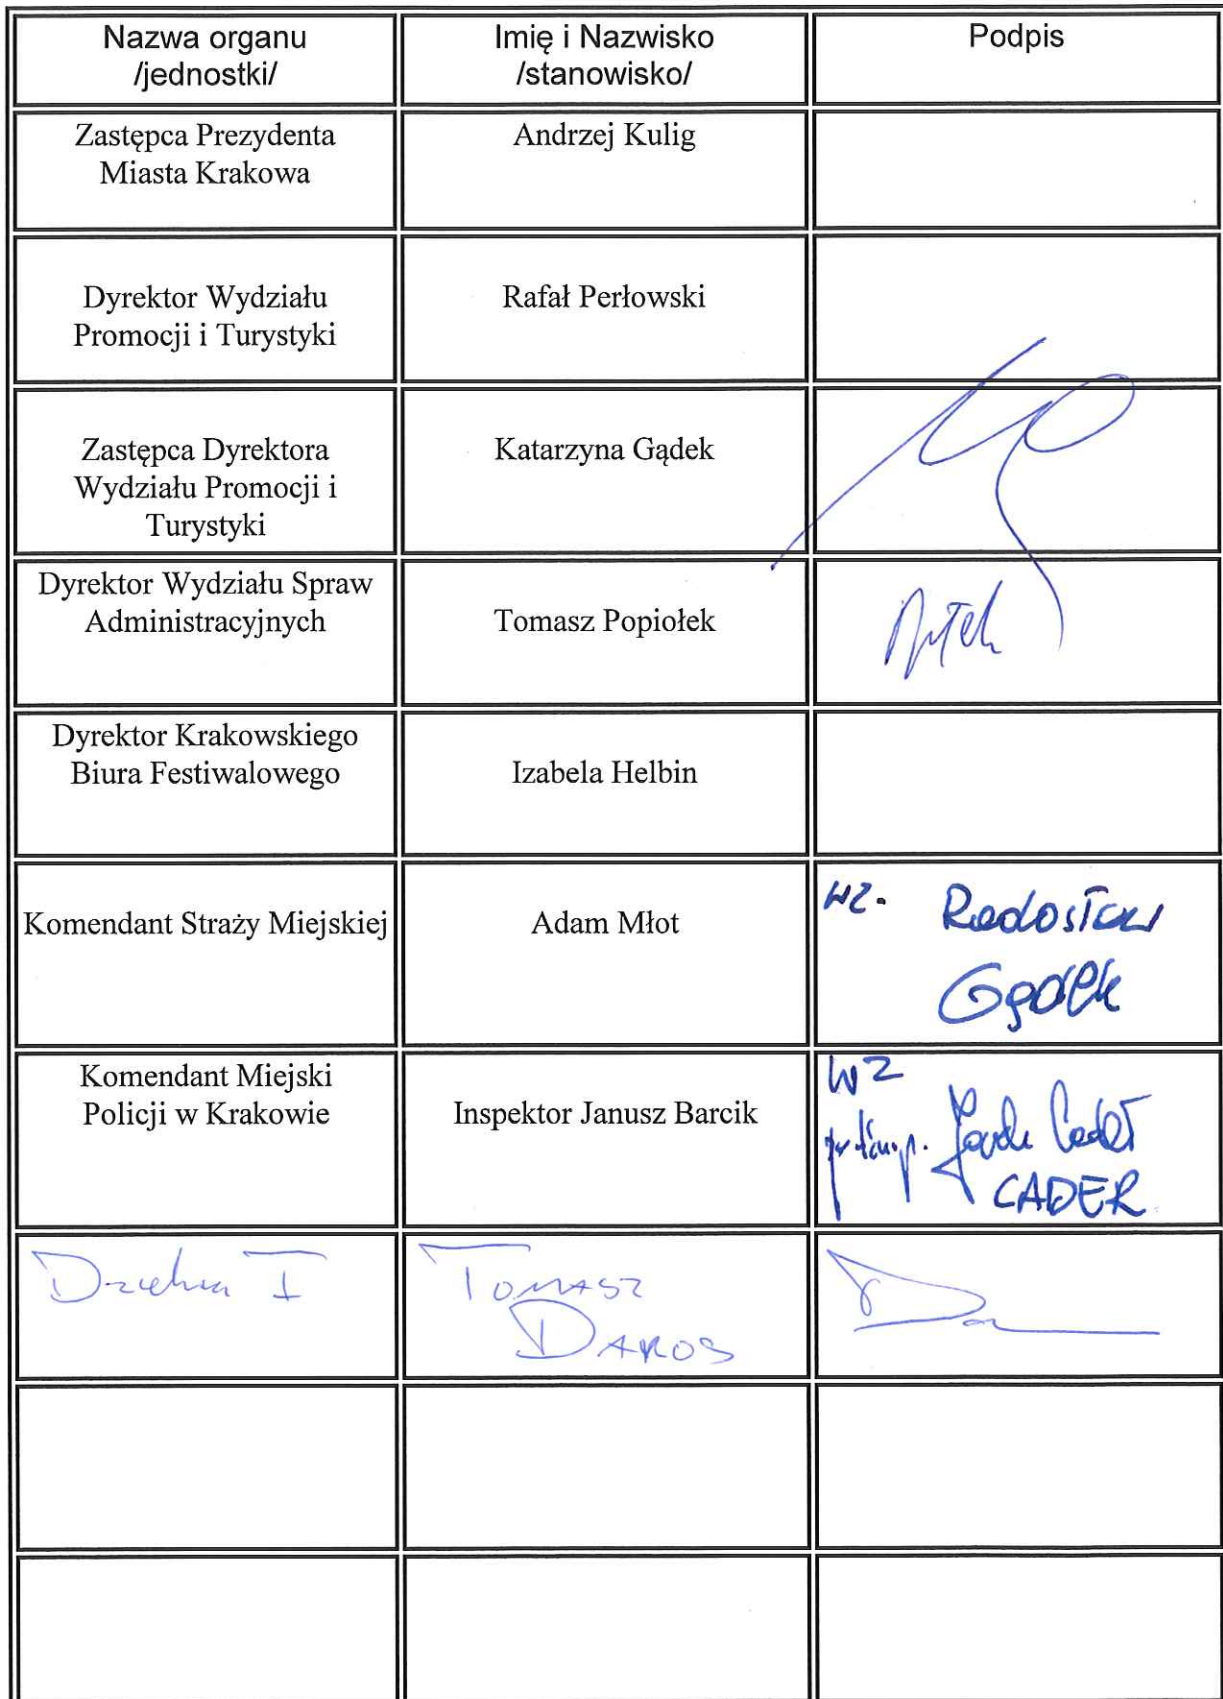 Nazwa organu
/jednostki/
Imię i Nazwisko
/stanowisko/
Podpis
Zastępca Prezydenta
Miasta Krakowa
Andrzej Kulig
Dyrektor Wydziału
Promocji i Turystyki
Rafał Perłowski
Zastępca Dyrektora
Wydziału Promocji i
Turystyki
Katarzyna Gądek
Dyrektor Wydziału Spraw
Administracyjnych
Tomasz Popiołek
Dyrektor Krakowskiego
Biura Festiwalowego
Izabela Helbin
Komendant Straży Miejskiej
Adam Młot
wz. Radosław
Gądek
Komendant Miejski
Policji w Krakowie
Inspektor Janusz Barcik
WZ
CADER
I
TOMASZ
DAROS